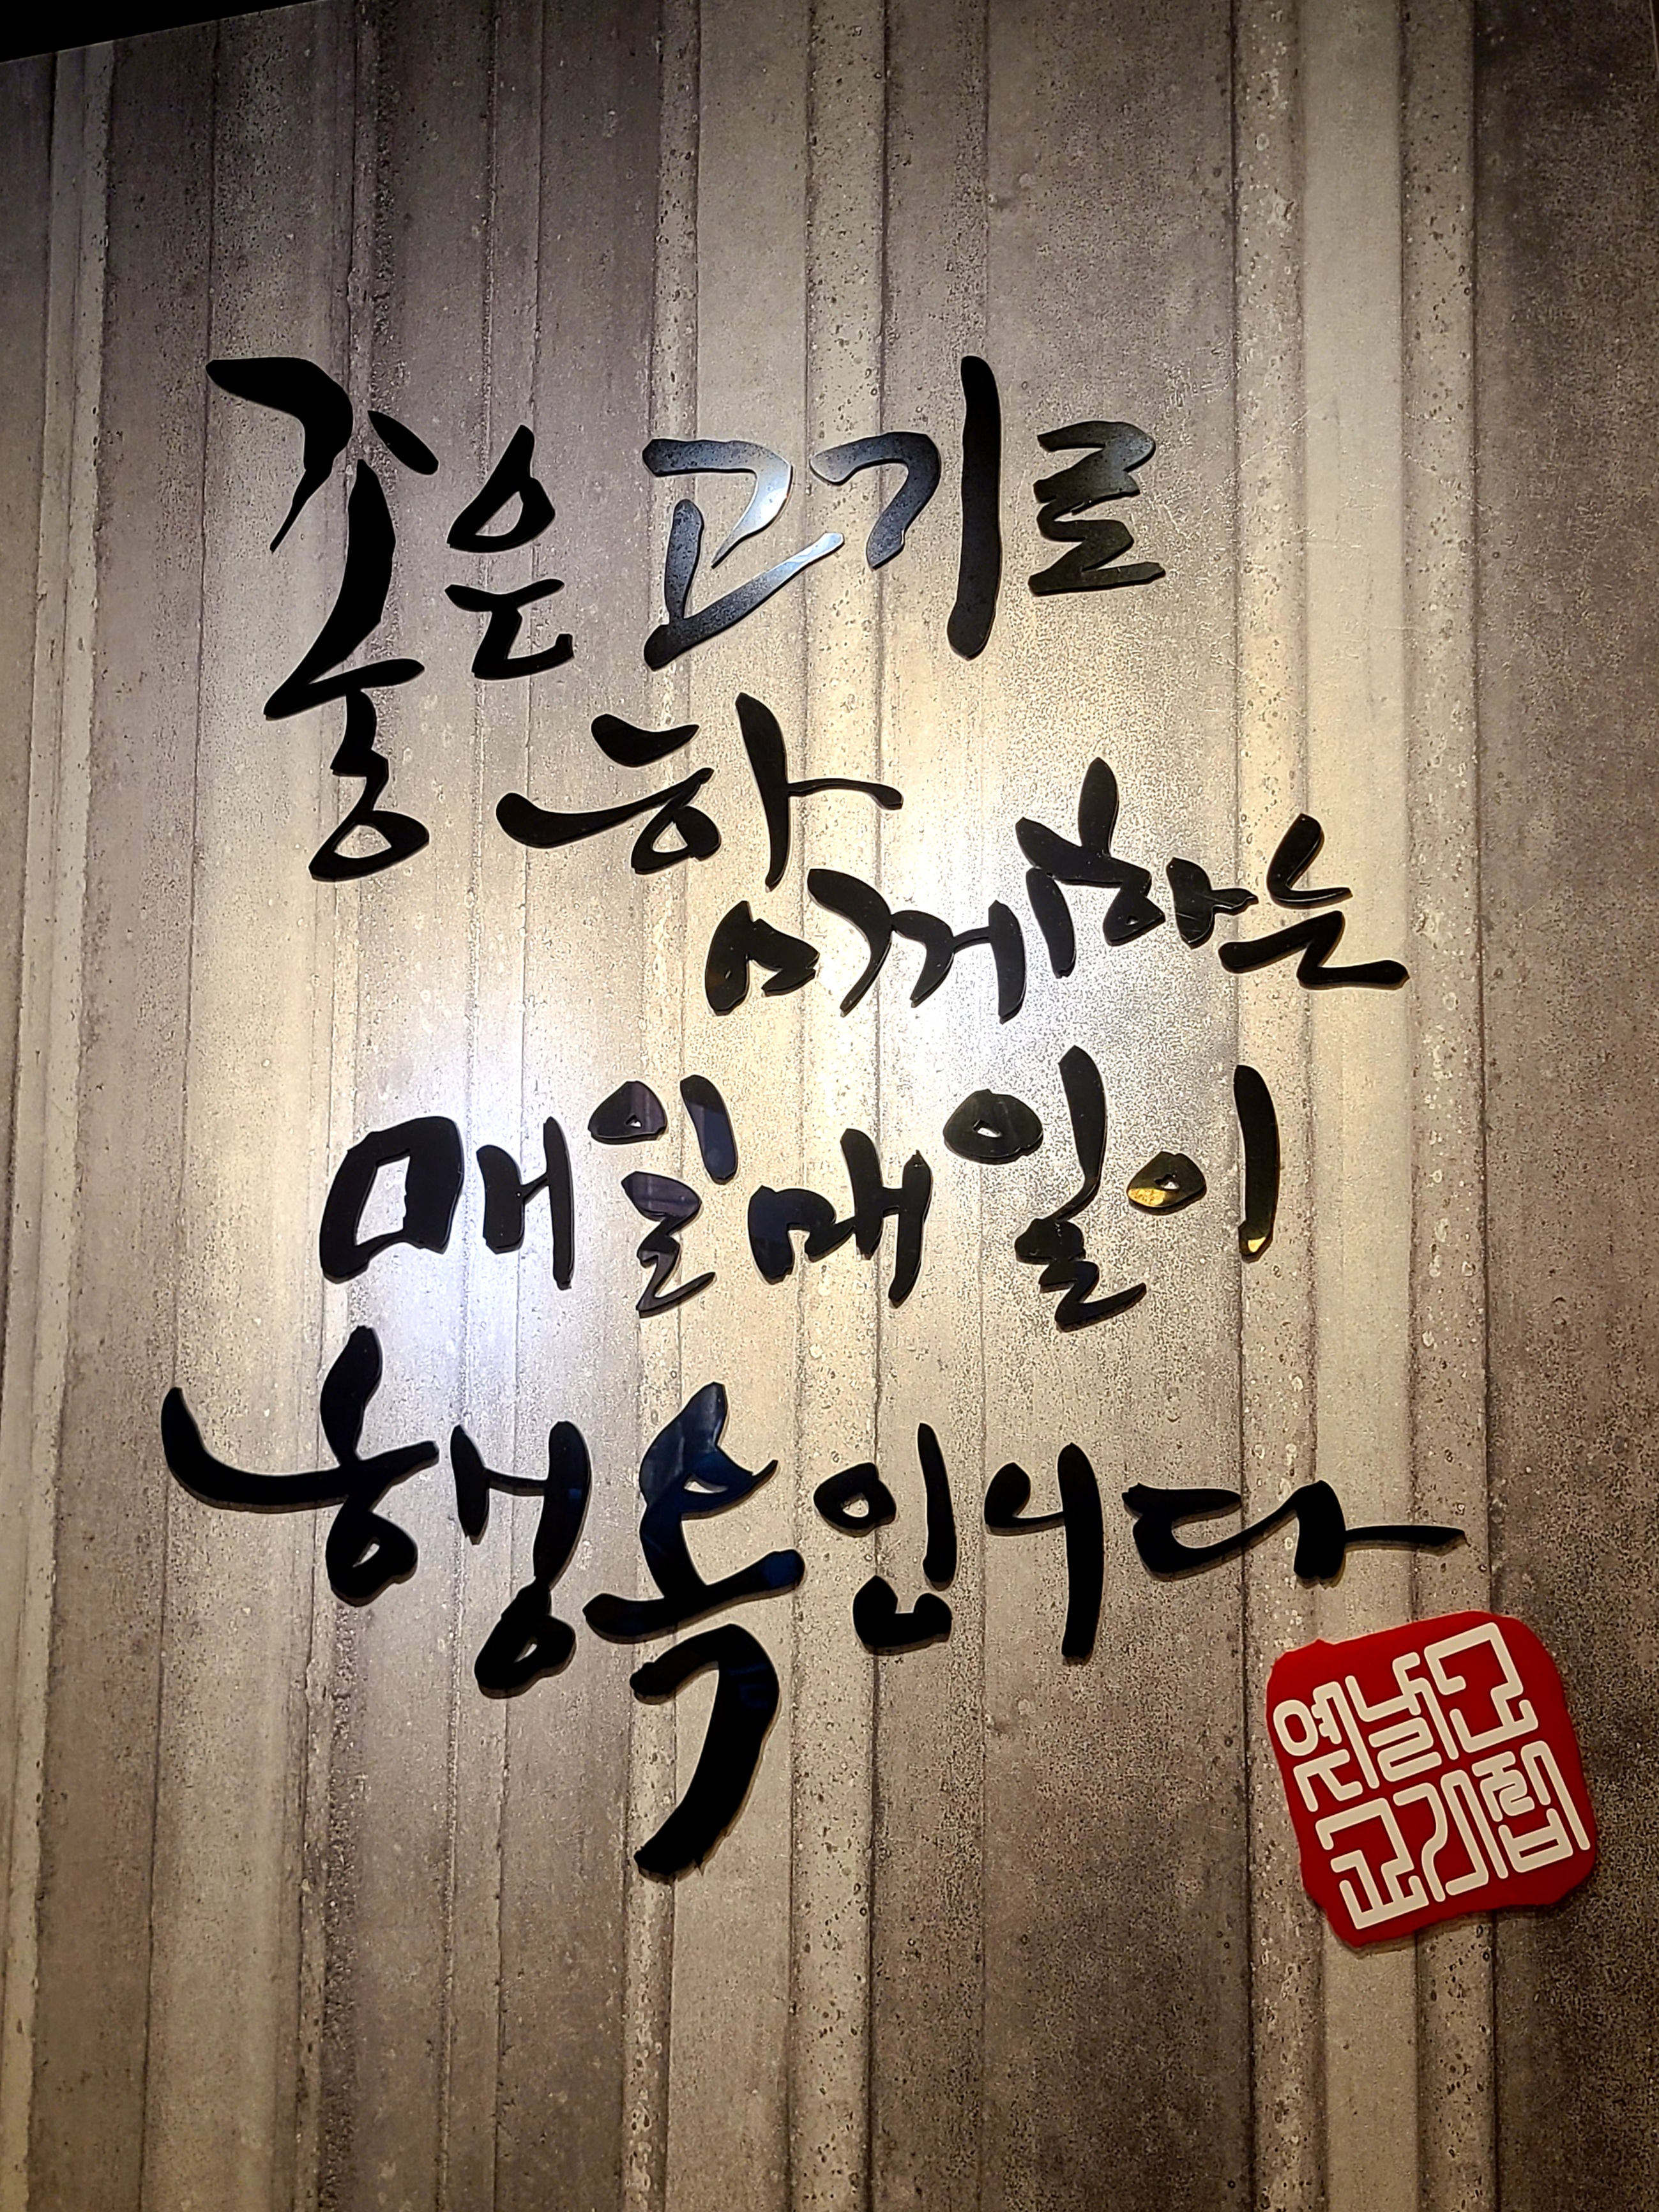 좋은 고기로
함께하는
매일매일이
행복입니다
옛날
고기집